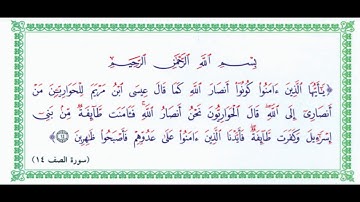 بِسْمِ اللَّهِ الرَّحْمَٰنِ الرَّحِيمِ
﴿ يَٰٓأَيُّهَا الَّذِينَ ءَامَنُوا كُونُوٓا أَنصَارَ اللَّهِ كَمَا قَالَ عِيسَى ابْنُ مَرْيَمَ لِلْحَوَارِيِّۦنَ مَنْ
أَنصَارِىٓ إِلَى اللَّهِ قَالَ الْحَوَارِيُّونَ نَحْنُ أَنصَارُ اللَّهِ فَـَٔامَنَت طَّآئِفَةٌ مِّنۢ بَنِىٓ
إِسْرَٰٓءِيلَ وَكَفَرَت طَّآئِفَةٌ فَأَيَّدْنَا الَّذِينَ ءَامَنُوا عَلَىٰ عَدُوِّهِمْ فَأَصْبَحُوا ظَٰهِرِينَ ١٤ ﴾
(سورة الصف ١٤)